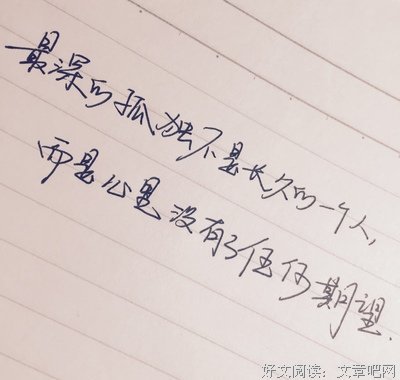 最深的孤独不是长久的一个人,
而是心里没有了任何期望.
好文阅读：文章吧网